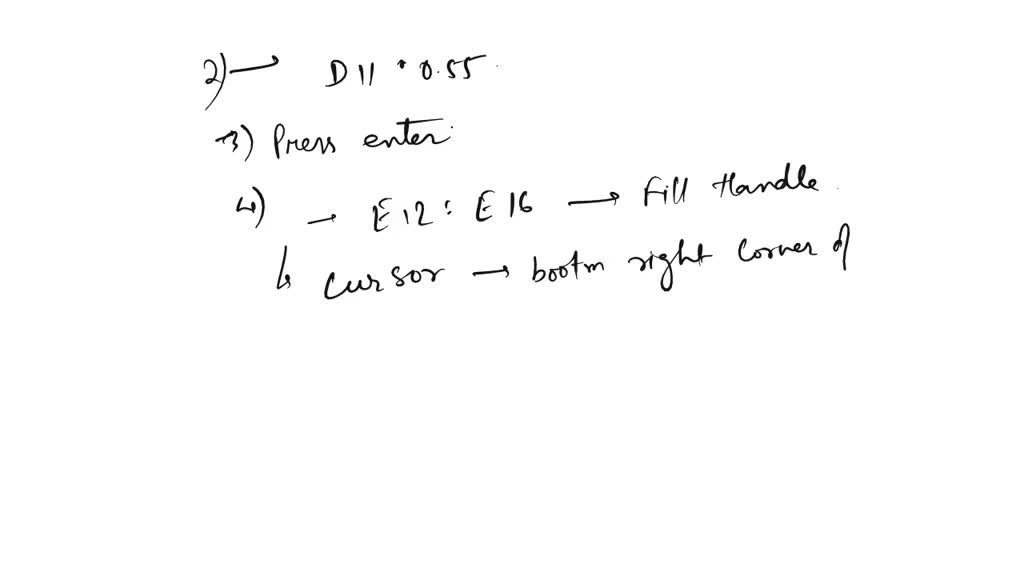 2) → D11 * 0.55
3) Press enter
4) → E12 : E16 → Fill Handle
↳ cursor → bootm right corner of